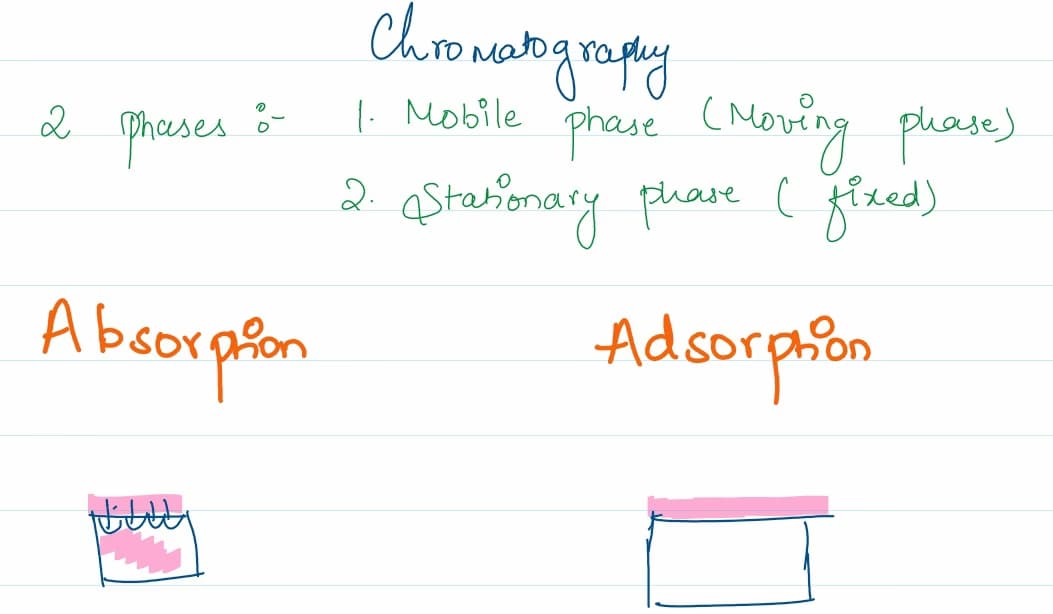 Chromatography
2 phases :- 1. Mobile phase (Moving phase)
2. Stationary phase ( fixed)
Absorption Adsorption